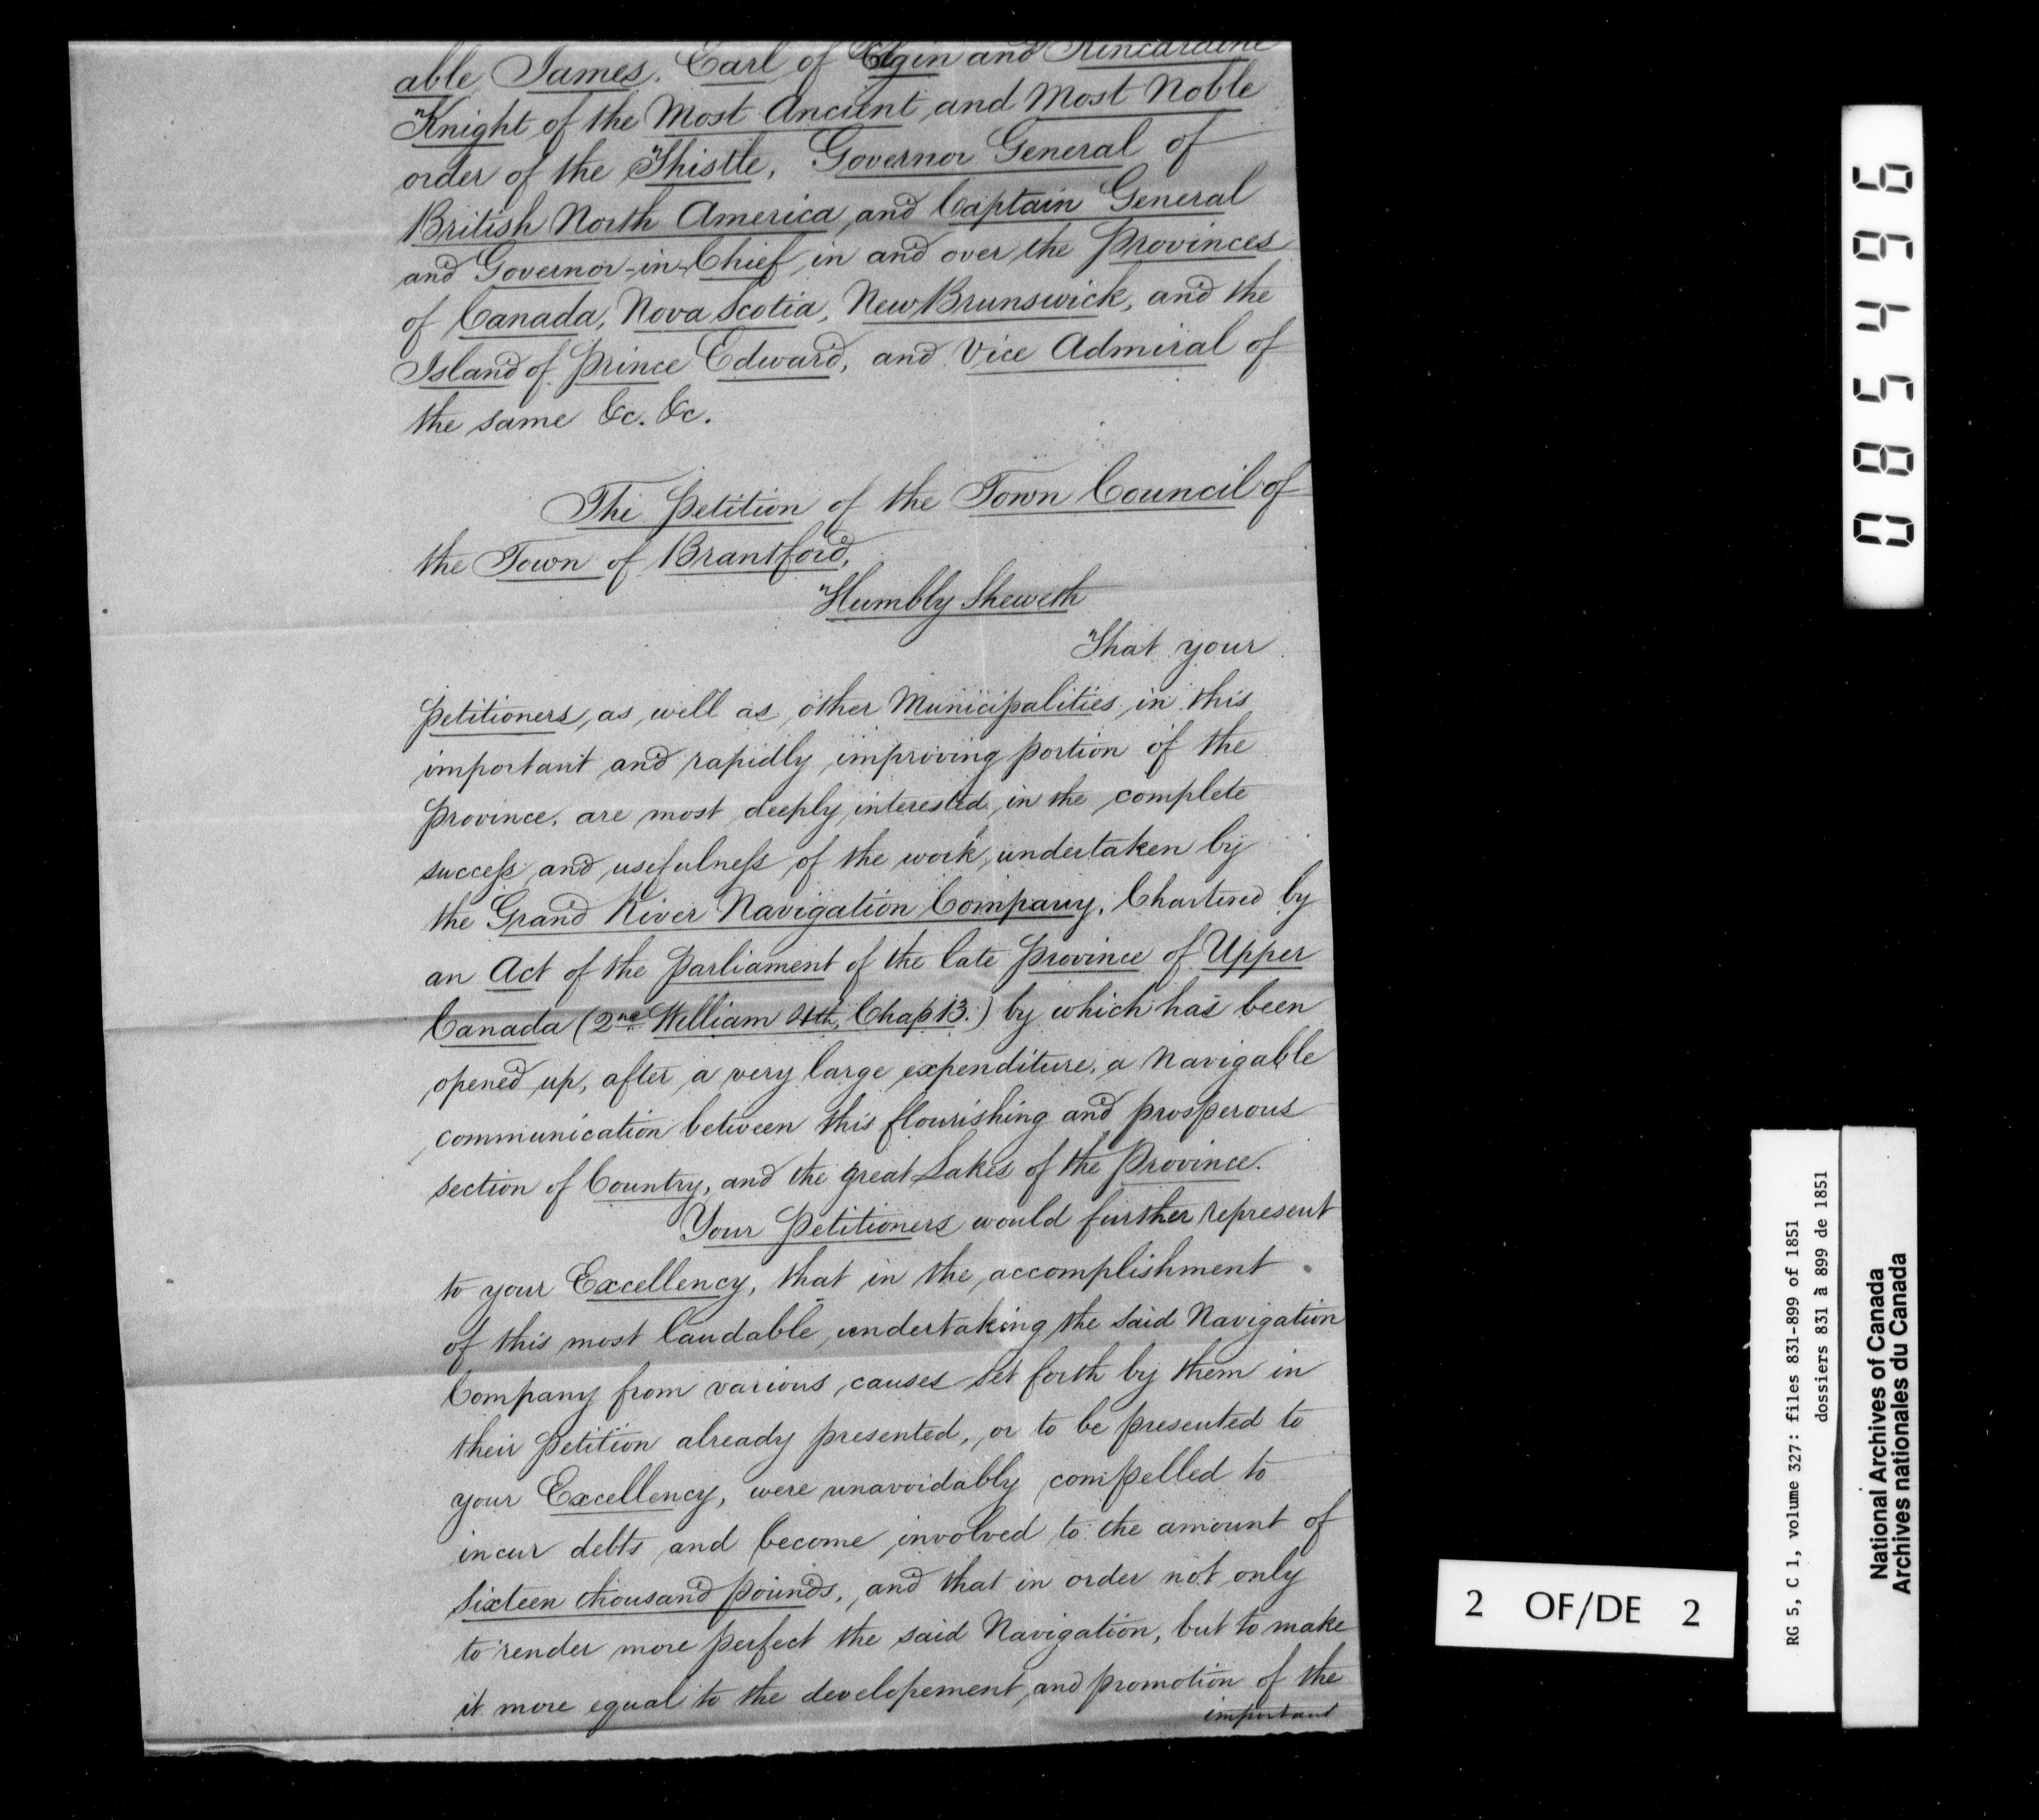 able James, Earl of Elgin and Kincardine
Knight of the Most Ancient and Most Noble
order of the Thistle, Governor General of
British North America, and Captain General
and Governor-in-Chief, in and over the Provinces
of Canada, Nova Scotia, New Brunswick, and the
Island of Prince Edward, and Vice Admiral of
the same &c. &c.
The Petition of the Town Council of
the Town of Brantford,
Humbly Sheweth
That your
Petitioners, as well as other Municipalities in this
important and rapidly improving portion of the
Province, are most deeply interested in the complete
success and usefulness of the work undertaken by
the Grand River Navigation Company, Chartered by
an Act of the Parliament of the late Province of Upper
Canada (2nd William 4th, Chap 13.) by which has been
opened up, after a very large expenditure, a Navigable
communication between this flourishing and prosperous
section of Country, and the great Lakes of the Province.
Your Petitioners would further represent
to your Excellency, that in the accomplishment
of this most laudable undertaking the said Navigation
Company from various causes set forth by them in
their Petition already presented, or to be presented to
your Excellency, were unavoidably compelled to
incur debts and become involved to the amount of
sixteen thousand pounds, and that in order not only
to render more perfect the said Navigation, but to make
it more equal to the developement and promotion of the
important
085496
2 OF/DE 2
RG 5, C 1, volume 327: files 831-899 of 1851
dossiers 831 à 899 de 1851
National Archives of Canada
Archives nationales du Canada